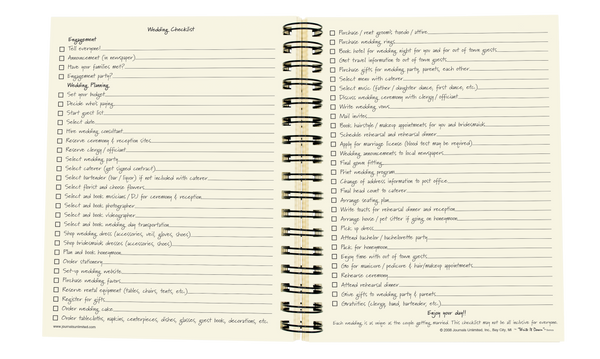 Wedding Checklist
Engagement
Tell everyone!
Announcement (in newspaper)
Have your families met?
Engagement party?
Wedding Planning
Set your budget
Decide who's paying
Start guest list
Select date
Hire wedding consultant
Reserve ceremony & reception sites
Reserve clergy / officiant
Select wedding party
Select caterer (get signed contract)
Select bartender (bar / liquor) if not included with caterer
Select florist and choose flowers
Select and book musicians / DJ for ceremony & reception
Select and book photographer
Select and book videographer
Select and book wedding day transportation
Shop wedding dress (accessories, veil, gloves, shoes)
Shop bridesmaids dresses (accessories, shoes)
Plan and book honeymoon
Order stationery
Set-up wedding website
Purchase wedding favors
Reserve rental equipment (tables, chairs, tents, etc.)
Register for gifts
Order wedding cake
Order tablecloths, napkins, centerpieces, dishes, glasses, guest book, decorations, etc.
www.journalsunlimited.com
Purchase / rent grooms, tuxedo / attire
Purchase wedding rings
Book hotel for wedding night for you and for out of town guests
Give travel information to out of town guests
Purchase gifts for wedding party, parents, each other
Select menu with caterer
Select music (father / daughter dance, first dance, etc.)
Discuss wedding ceremony with clergy / officiant
Write wedding vows
Mail invites
Book hairstyle / makeup appointments for you and bridesmaids
Schedule rehearsal and rehearsal dinner
Apply for marriage license (blood test may be required)
Wedding announcements to local newspapers
Final gown fitting
Print wedding program
Change of address information to post office
Final head count to caterer
Arrange seating plan
Write toasts for rehearsal dinner and reception
Arrange house / pet sitter if going on honeymoon
Pick up dress
Attend bachelor / bachelorette party
Pack for honeymoon
Enjoy time with out of town guests
Go for manicure / pedicure & hair/makeup appointments
Rehearse ceremony
Attend rehearsal dinner
Give gifts to wedding party & parents
Gratuities (clergy, hand, bartender, etc.)
Enjoy your day!!
Each wedding is as unique as the couple getting married. This checklist may not be all inclusive for everyone.
© 2008 Journals Unlimited, Inc. Bay City, MI "Write it Down"